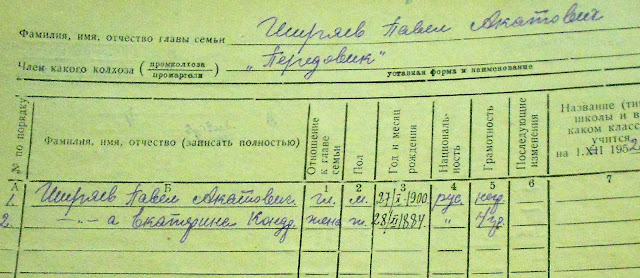 Фамилия, имя, отчество главы семьи Ширяев Павел Акатович
Член какого колхоза ( промколхоза / промартели ) „Передовик“
уставная форма и наименование
№ по порядку Фамилия, имя, отчество (записать полностью) Отношение к главе семьи Пол Год и месяц рождения Националь-ность Грамотность Последующие изменения Название (ти школы и в каком класс учится на 1.XII 1952
А Б 1 2 3 4 5 6 7
1. Ширяев Павел Акатович гл. м. 1900 рус
2. —"— а Екатерина Конд. жена ж. 1884 "